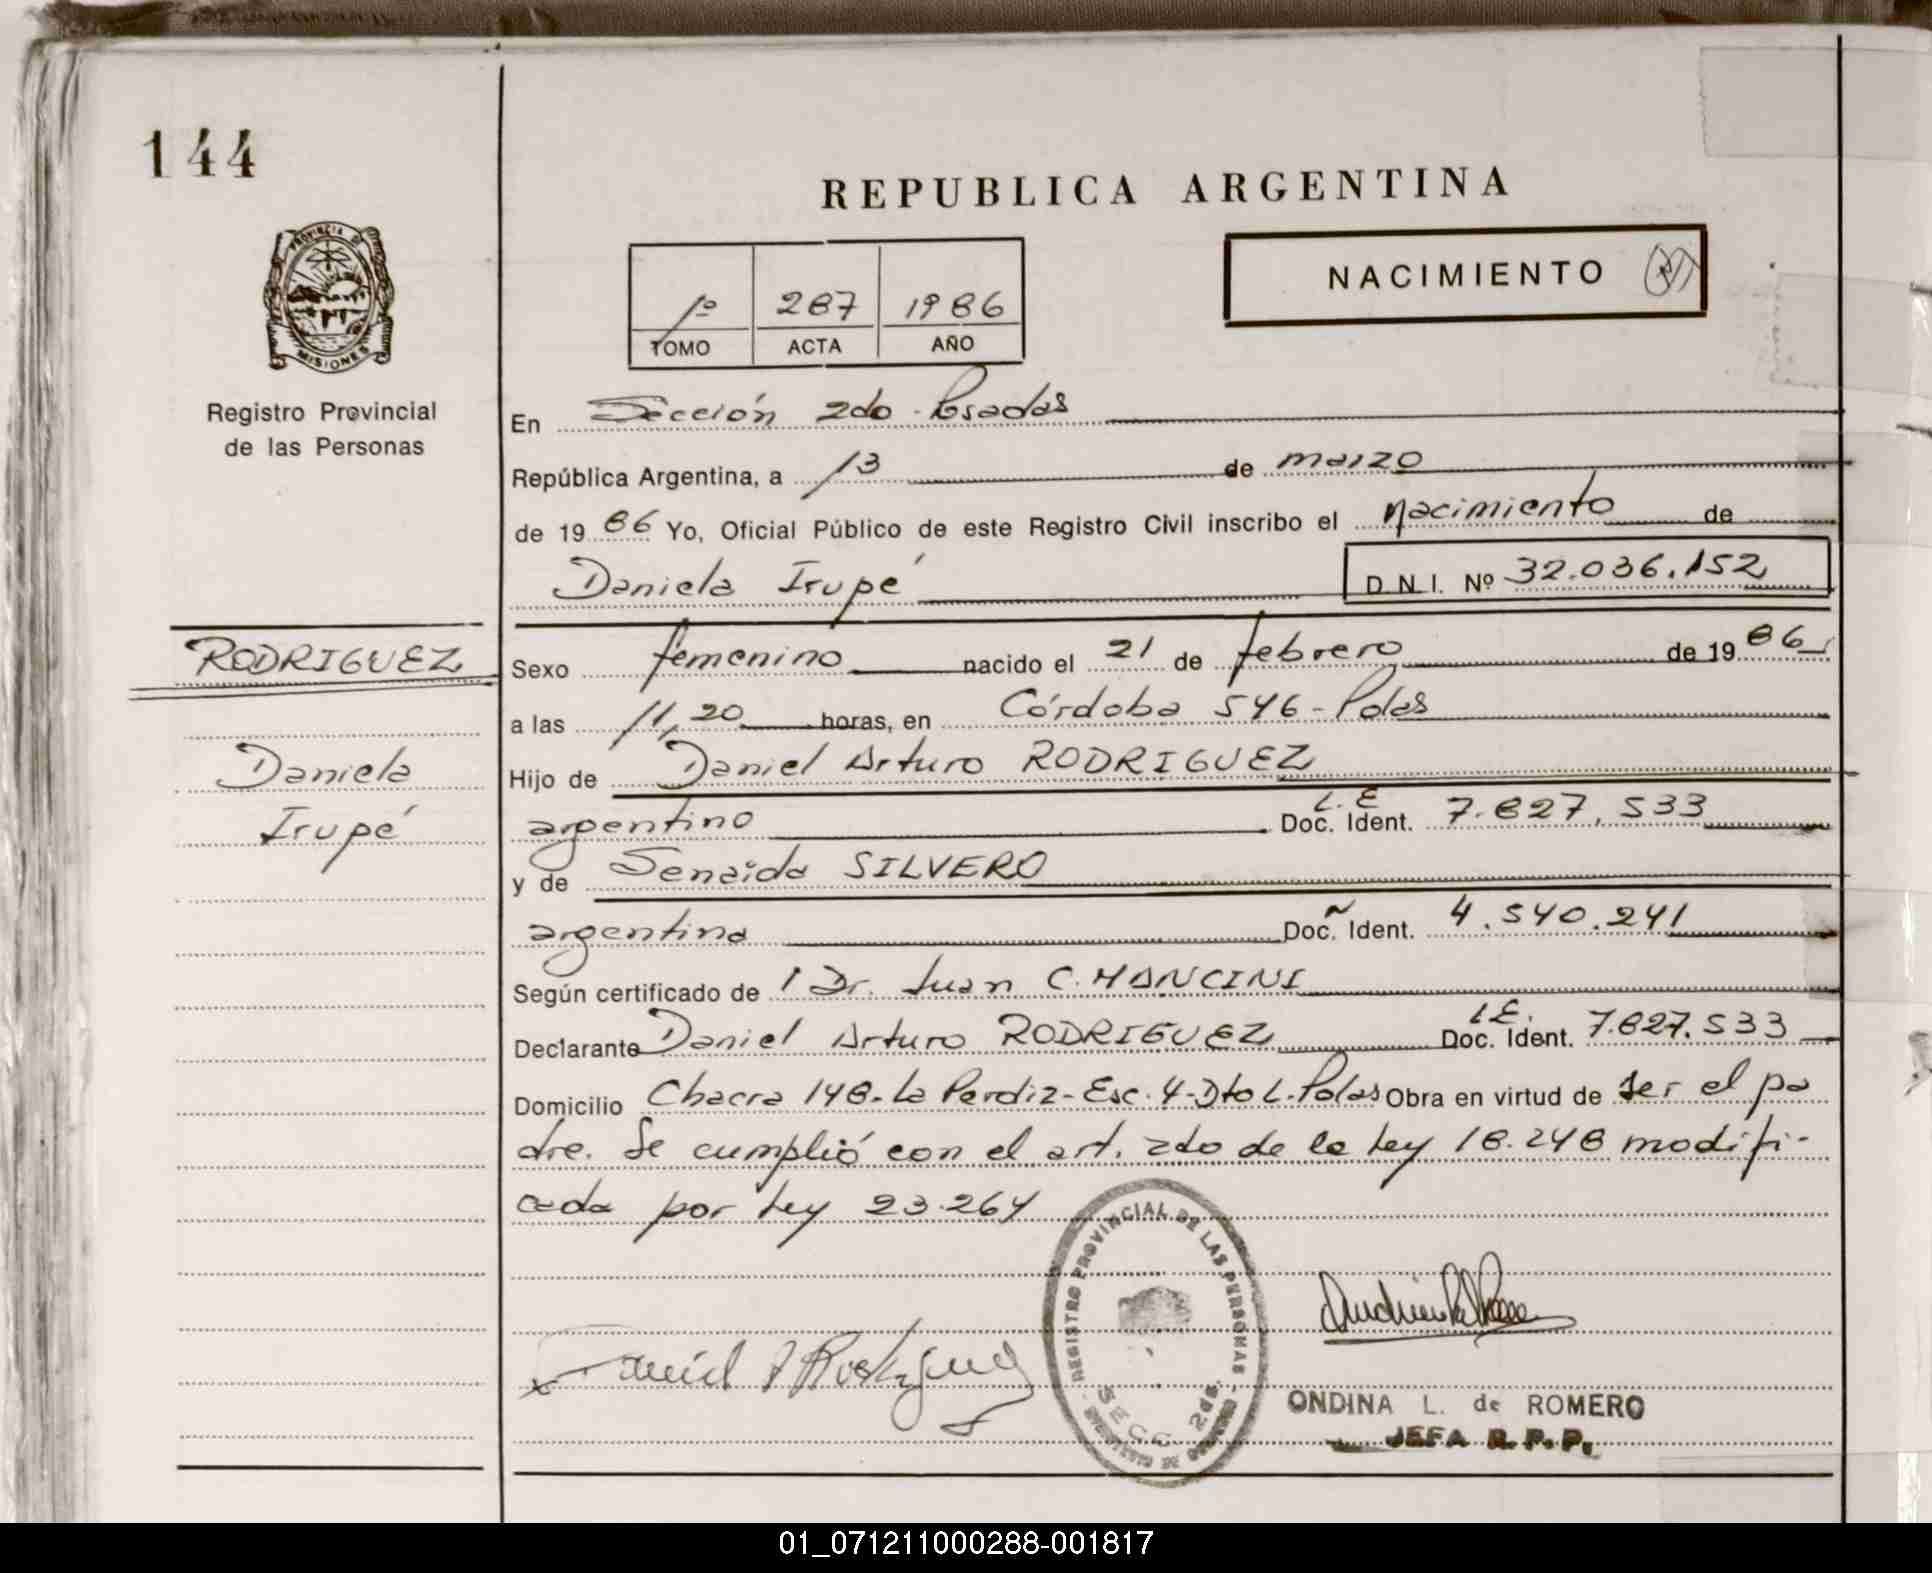 144
REPUBLICA ARGENTINA
PROVINCIA DE
MISIONES
Registro Provincial
de las Personas
1º 287 1986
TOMO ACTA AÑO
NACIMIENTO
En Sección 2do - Posadas
República Argentina, a 13 de marzo
de 1986 Yo, Oficial Público de este Registro Civil inscribo el nacimiento de
Daniela Irupé D.N.I. Nº 32.036.152
RODRIGUEZ
Daniela
Irupé
Sexo femenino nacido el 21 de febrero de 1986
a las 11,20 horas, en Córdoba 546 - Pdas
Hijo de Daniel Arturo RODRIGUEZ
argentino L.E Doc. Ident. 7.827.533
y de Senaida SILVERO
argentina Doc. Ident. 4.540.241
Según certificado de 1 Dr. Juan C. MANCINI
Declarante Daniel Arturo RODRIGUEZ L.E. Doc. Ident. 7.827.533
Domicilio Chacra 148 - La Perdiz - Esc. 4 - Dto L. Pdas Obra en virtud de ser el pa
dre. Se cumplió con el art. 2do de la Ley 18.248 modifi-
cada por Ley 23.264
REGISTRO PROVINCIAL DE LAS PERSONAS
SECC. 2da.
Daniel A Rodriguez
ONDINA L. de ROMERO
JEFA R.P.P.
01_071211000288-001817